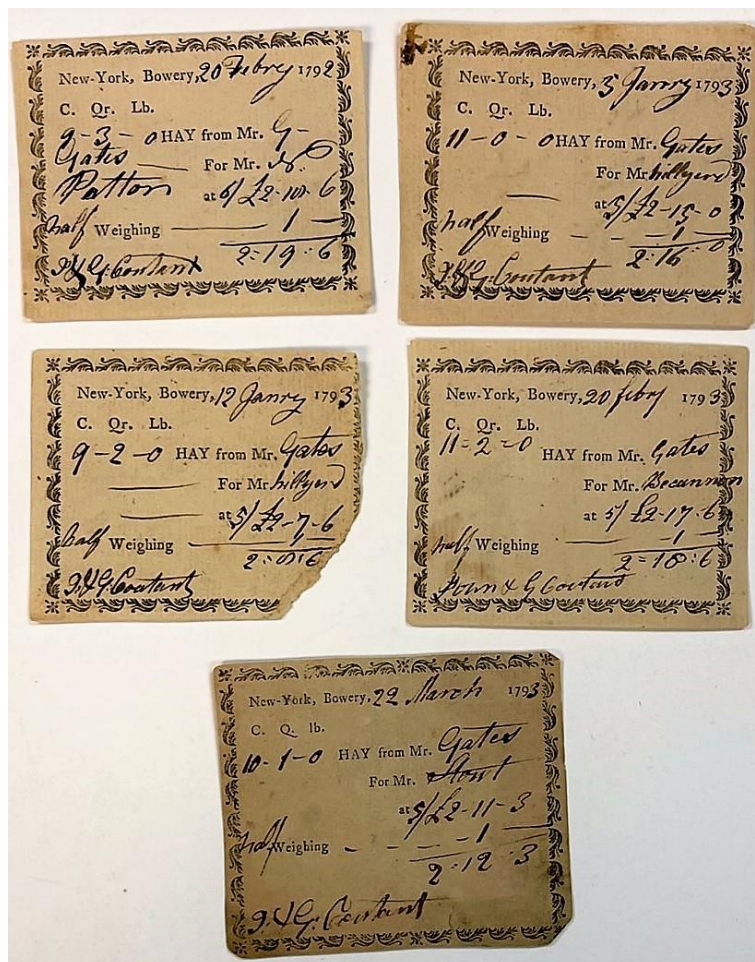 New-York, Bowery, 20 Febry 1792
C. Qr. Lb.
9-3-0 HAY from Mr. G-
Gates — For Mr. N.
Patton at 5/ £2-18-6
half Weighing — 1 —
2:19:6
J & G: Coutant
New-York, Bowery, 5 Janry 1793
C. Qr. Lb.
11-0-0 HAY from Mr. Gates
For Mr hillyerd
— at 5/ £2-15-0
half Weighing — - - 1 -
2:16:0
J & G: Coutant
New-York, Bowery, 12 Janry 1793
C. Qr. Lb.
9-2-0 HAY from Mr. Gates
— For Mr hillyerd
— at 5/ £2-7-6
half Weighing — 1 —
2:8:6
J. & G: Coutant
New-York, Bowery, 20 febry 1793
C. Qr. Lb.
11=2=0 HAY from Mr. Gates
For Mr. Becannon
at 5/ £2-17-6
half Weighing — 1 —
2=18:6
John & G Coutant
New-York, Bowery, 22 March 1793
C. Q. lb.
10-1-0 HAY from Mr. Gates
For Mr. Stout
at 5/ £2-11-3
half Weighing - - - - 1 —
2:12:3
J. & G: Coutant